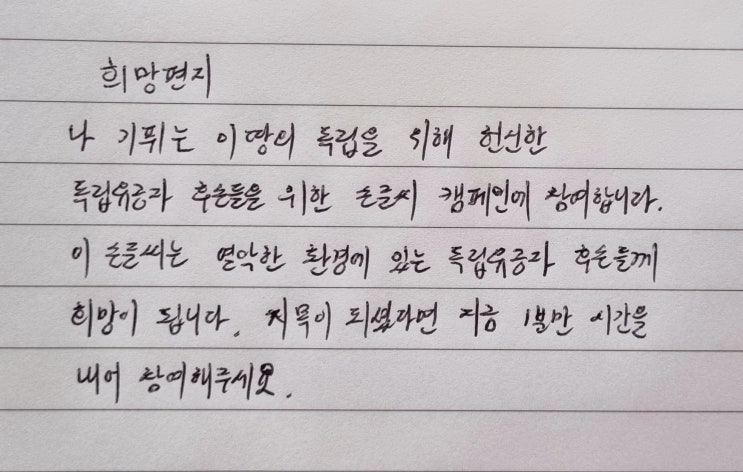 희망편지
나 기쀠는 이 땅의 독립을 위해 헌신한
독립유공자 후손들을 위한 손글씨 캠페인에 참여합니다.
이 손글씨는 열악한 환경에 있는 독립유공자 후손들께
희망이 됩니다. 지목이 되셨다면 지금 1분만 시간을
내어 참여해주세요.